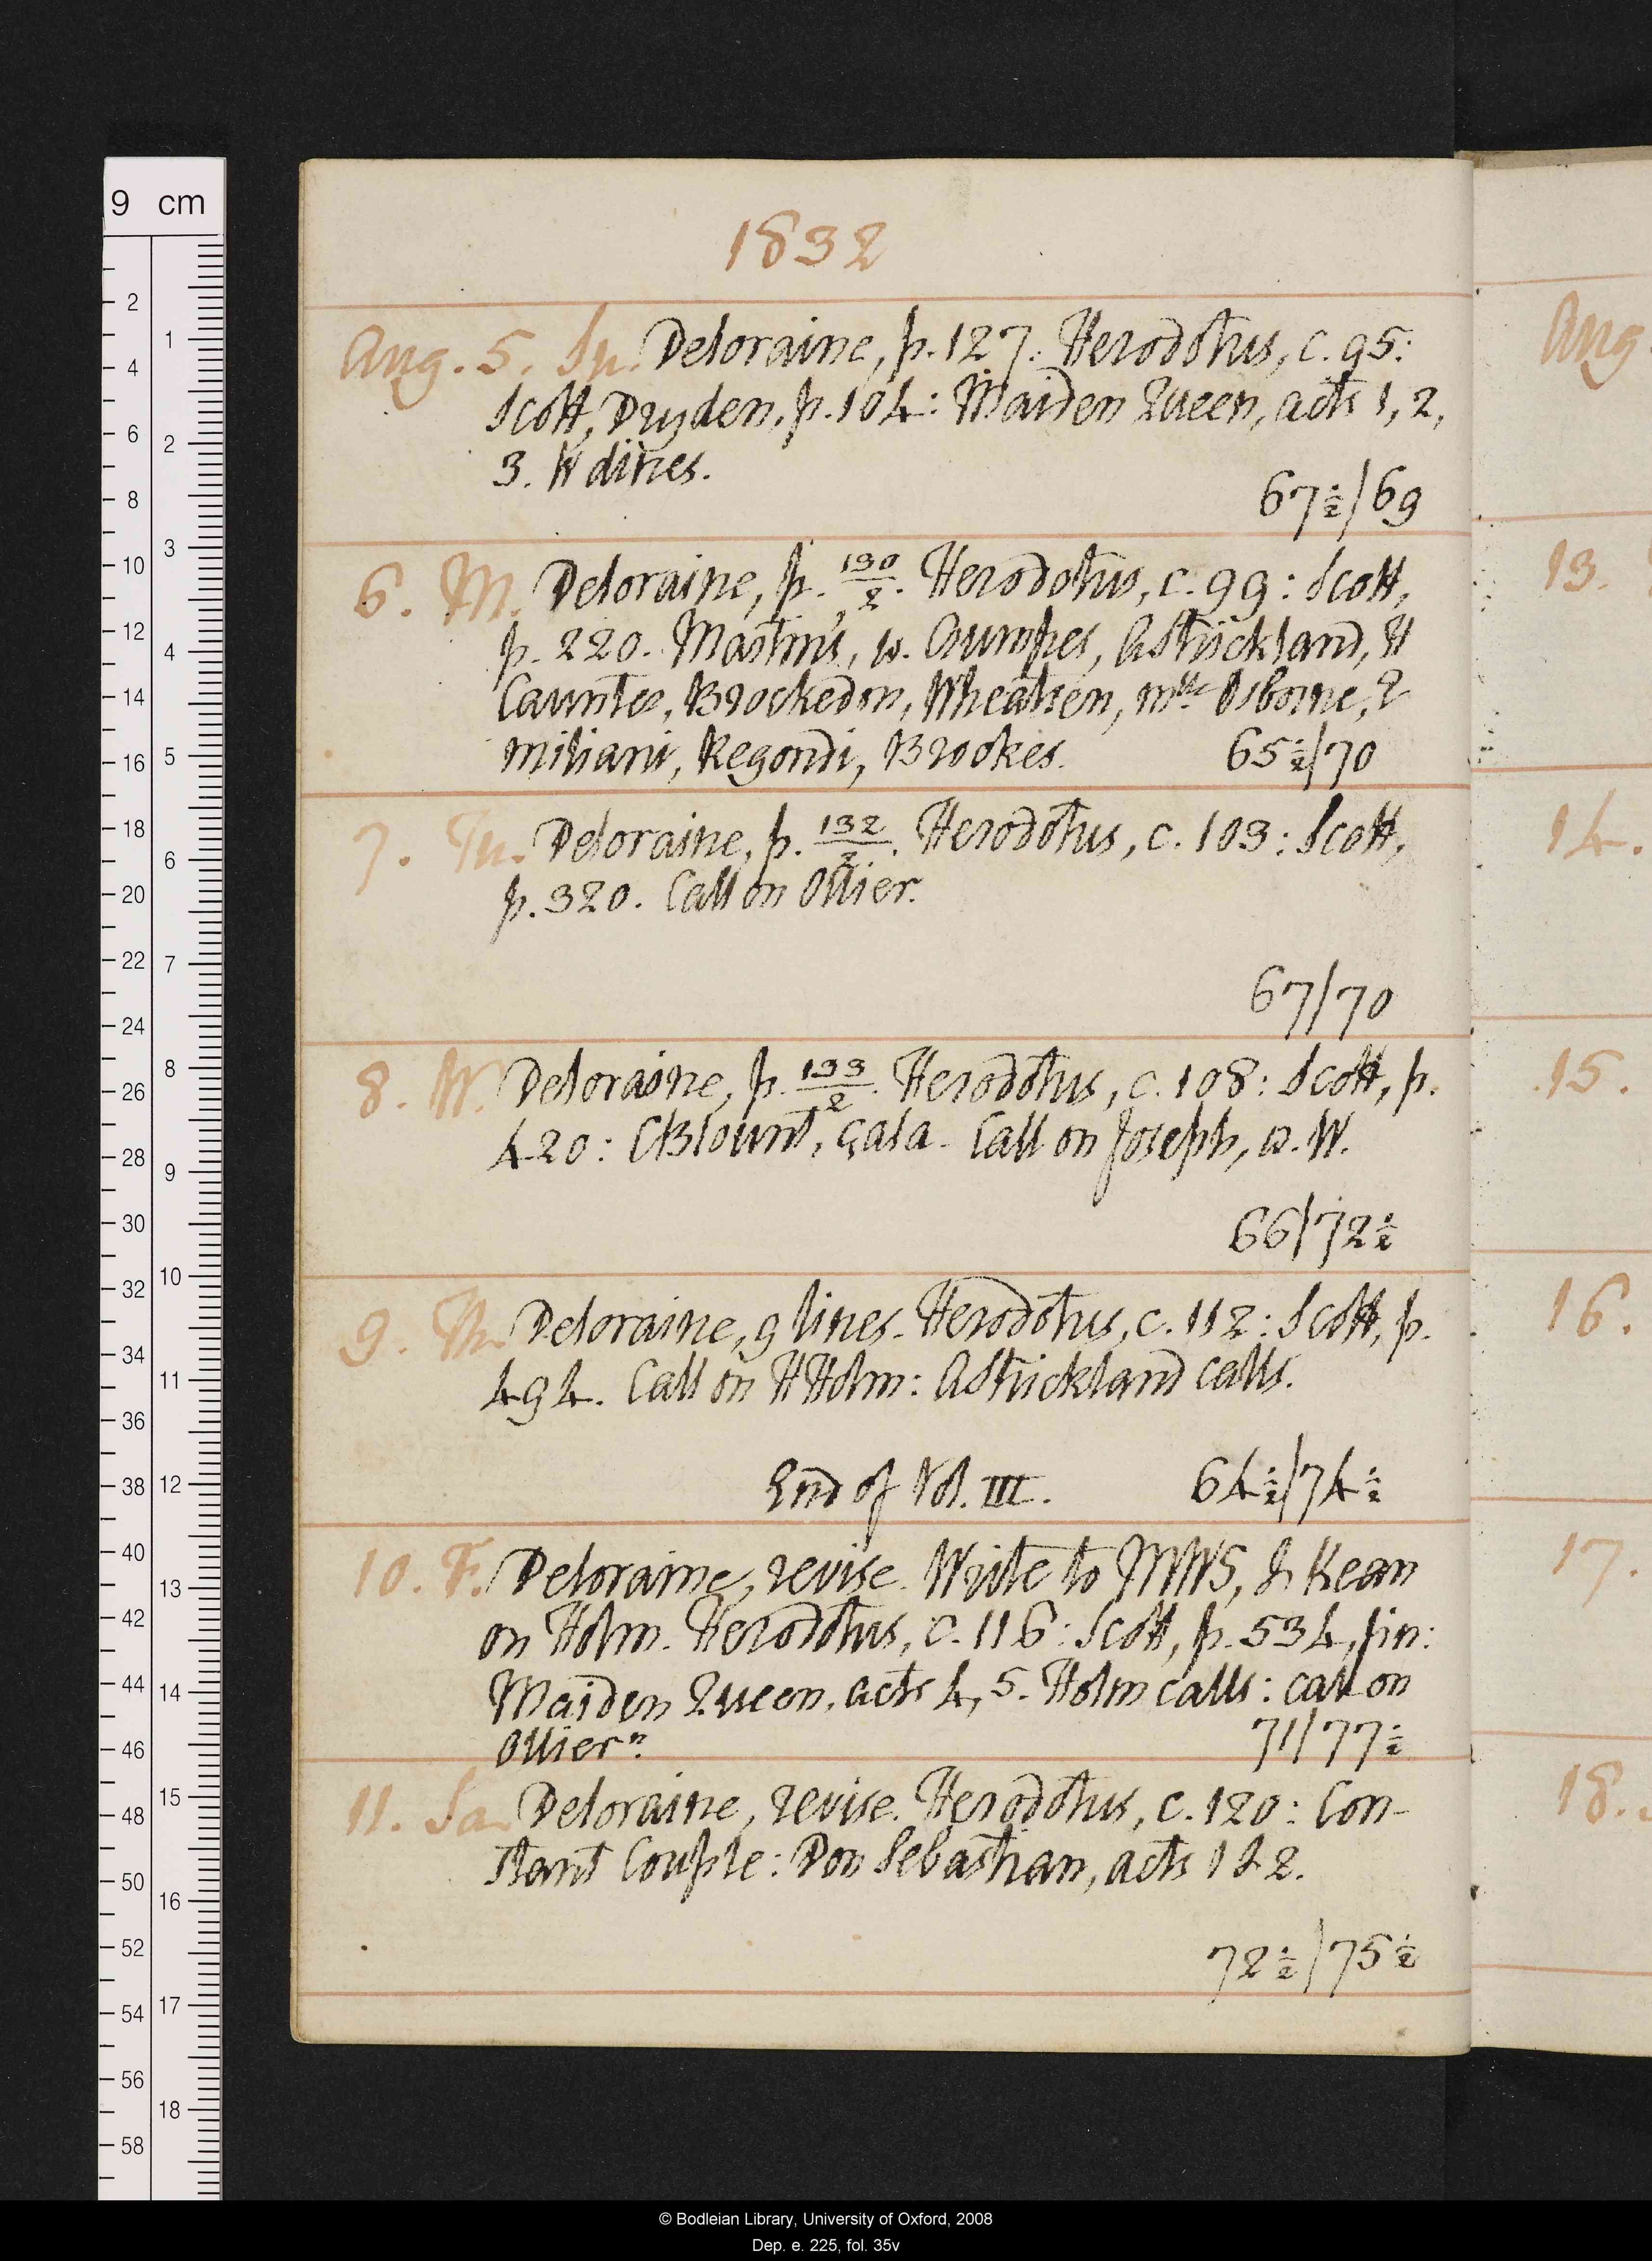 1832
Aug. 5. Su. Deloraine, p. 127. Herodotus, c. 95:
Scott, Dryden, p. 104: Maiden Queen, acts 1, 2,
3. W dines.
67½/69
6. M. Deloraine, p. 130/2. Herodotus, c. 99: Scott,
p. 220. Martin's, w. Crumpes, AStrickland, H
Caunter, Brockedon, Wheatsen, mlle Osborne, &
miliani, Regondi, Brookes. 65½/70
7. Tu. Deloraine, p. 132/2. Herodotus, c. 103: Scott,
p. 320. Call on Ollier.
67/70
8. W. Deloraine, p. 133/2. Herodotus, c. 108: Scott, p.
420: CBlount, çala. Call on Joseph, w. W.
66/72½
9. Th. Deloraine, 9 lines. Herodotus, c. 112: Scott, p.
494. Call on HHolm: AStrickland calls.
End of Vol. III. 64½/74½
10. F. Deloraine, revise. Write to MWS, & Kean
on Holm. Herodotus, c. 116: Scott, p. 534, fin:
Maiden Queen, acts 4, 5. Holm calls: call on
Ollier n. 71/77½
11. Sa. Deloraine, revise. Herodotus, c. 120: Con-
stant Couple: Don Sebastian, acts 1 & 2.
72½/75½
Aug
13.
14.
15.
16.
17.
18.
9 cm
© Bodleian Library, University of Oxford, 2008
Dep. e. 225, fol. 35v